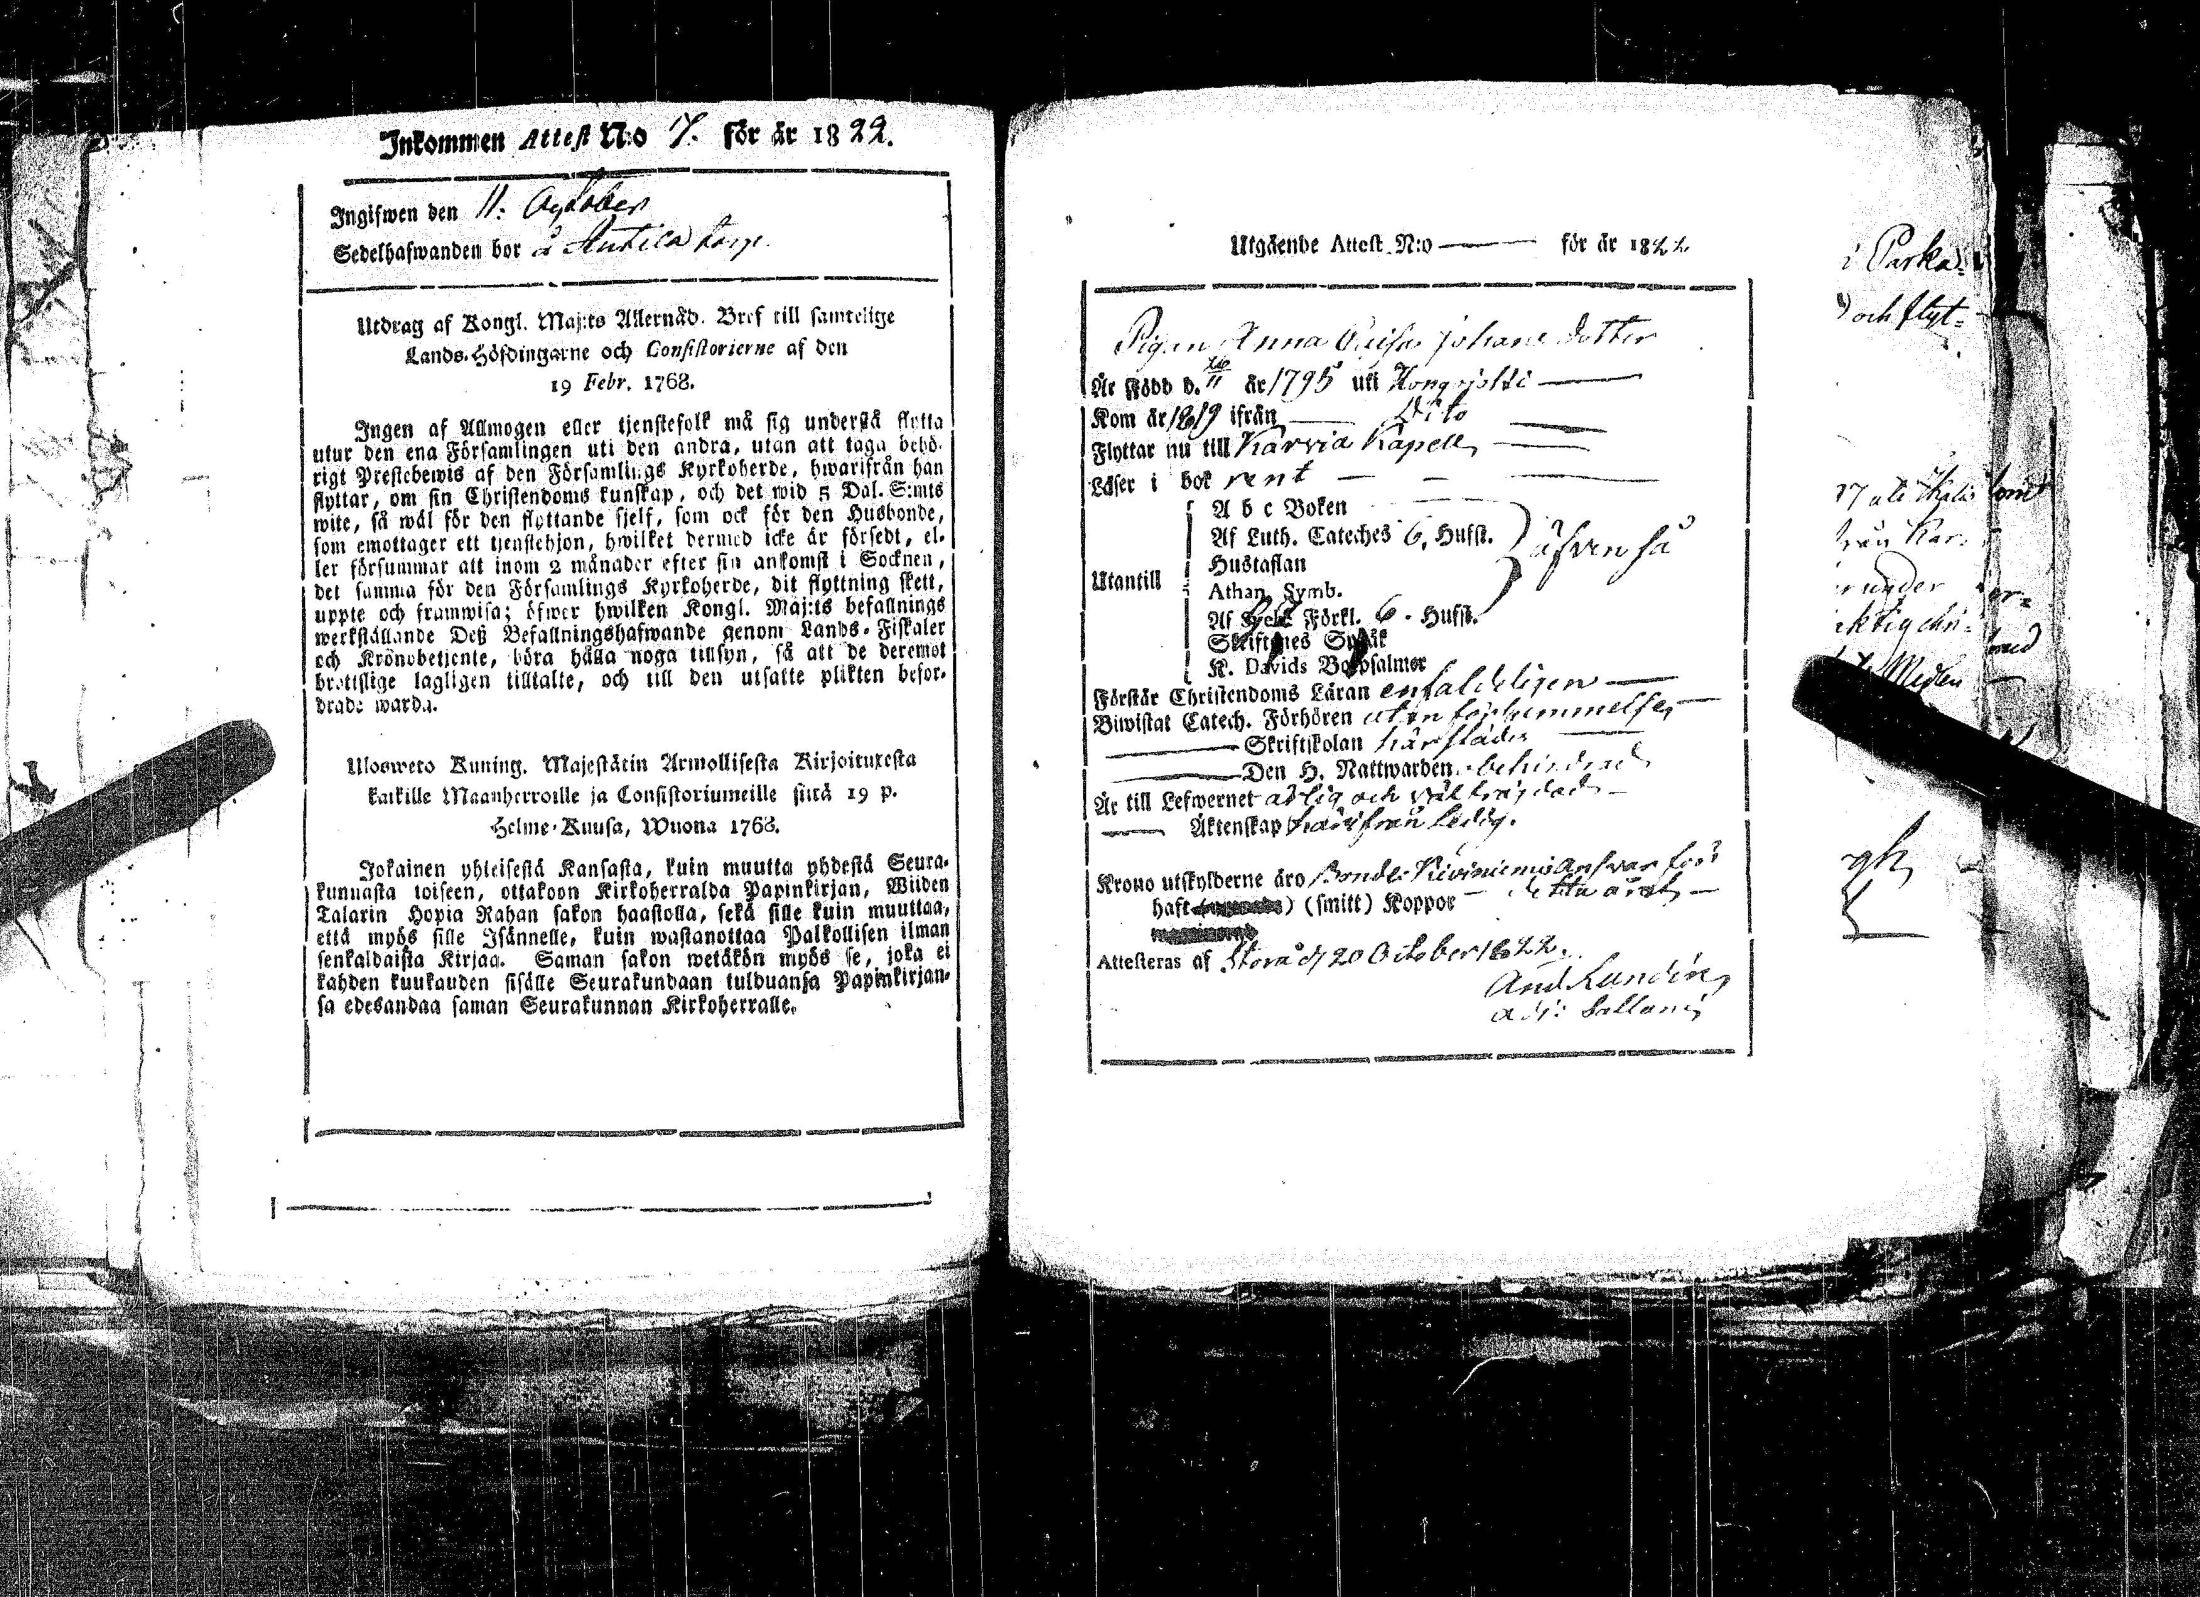 Inkommen Attest N:o 7. för år 1822.
Ingifwen den 11: October
Sedelhafwanden bor å Antila torp.
Utdrag af Kongl. Maj:ts Allernåd. Bref till samtelige
Lands-Höfdingarne och Consistorierne af den
19 Febr. 1768.
Ingen af Allmogen eller tjenstefolk må sig understå flytta
utur den ena Församlingen uti den andra, utan att taga behö-
rigt Prestebewis af den Församlings Kyrkoherde, hwarifrån han
flyttar, om sin Christendoms kunskap, och det wid 5 Dal. S:mts
wite, så wäl för den flyttande sjelf, som ock för den Husbonde,
som emottager ett tjenstehjon, hwilket dermed icke är försedt, el-
ler försummar att inom 2 månader efter sin ankomst i Socknen,
det samma för den Församlings Kyrkoherde, dit flyttning skett,
uppte och framwisa; öfwer hwilken Kongl. Maj:ts befallnings
werkställande Deß Befallningshafwande genom Lands-Fiskaler
och Kronobetjente, böra hålla noga tillsyn, så att de deremot
brottslige lagligen tilltalte, och till den utsatte plikten befor-
drade warda.
Ulosweto Kuning. Majestätin Armollisesta Kirjoituxesta
kaikille Maanherroille ja Consistoriumeille siitä 19 p.
Helme-Kuusa, Wuona 1768.
Jokainen yhteisestä Kansasta, kuin muutta yhdestä Seura-
kunnasta toiseen, ottakoon Kirkoherralda Papinkirjan, Wiiden
Talarin Hopia Rahan sakon haastolla, sekä sille kuin muuttaa,
että myös sille Isännelle, kuin wastanottaa Palkollisen ilman
senkaldaista Kirjaa. Saman sakon wetäkön myös se, joka ei
kahden kuukauden sisälle Seurakundaan tulduansa Papinkirjan-
sa edesandaa saman Seurakunnan Kirkoherralle.
Utgående Attest N:o för år 1822
Pigan Anna Caisa Johans dotter
Är Född d. 11 år 1795 uti Hongojoki
Kom år 1819 ifrån Dito
Flyttar nu till Karvia Kapell
Läser i bok rent
A b c Boken
Af Luth. Cateches 6, Hufst.
Hustaflan
äfven så
Utantill
Athan. Symb.
Af Förkl. 6. Hufst.
Skriftenes Språk
K. Davids Botpsalmer
Förstår Christendoms Läran enfaldeligen
Biwistat Catech. Förhören utan försummelse
Skriftskolan härstädes
Den H. Nattwarden obehindrad
Är till Lefwernet ärlig och
Äktenskap härifrån ledig.
Krono utskylderne äro Bonde Kiviniemi answar för
haft (smitt) Koppor detta året
Attesteras af Storå d 20 October 1822.
And Lundin
adj: Sallani
i Parka-
och flyt-
från Kar-
under
Medlen